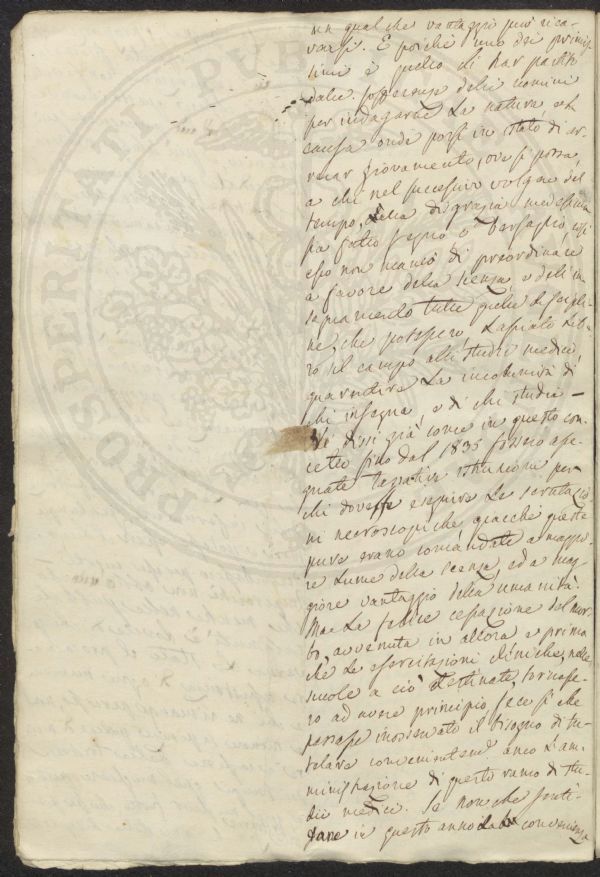 un qualche vantaggio può rica-
varsi. E poichè uno dei primis-
simi è quello di trar partito
dalle sofferenze delli uomini
per indagarne la natura ed
causa onde porsi in stato di ar-
recar giovamento, ove si possa,
a chi nel successivo volger del
tempo, della disgrazia medesima
sia fatto segno e bersaglio, così
esso non mancò di preordinare
a favore della scienza, e dell'in-
segnamento tutte quelle
che potessero, lasciato libe-
ro il campo alli studi medici,
guarentire la incolumità di
chi insegna, e di chi studia —
Vi dissi già come in questo con-
cetto fino dal 1835 fossero asse-
gnate istruzione per
chi dovesse eseguire le
ni necroscopiche giacchè queste
pure erano comandate a maggio-
re lume della scienza, ed a mag-
giore vantaggio della umanità.
Ma la felice cessazione del mor-
bo, avvenuta in allora e prima
chè le esercitazioni cliniche, nelle
scuole a ciò destinate tornasse-
ro ad avere principio fece sì che
passasse inosservato il bisogno di tu-
telare convenientemente anco l'am-
ministrazione di questo ramo di stu-
dii medici. Se non che
in questo anno la convenienza